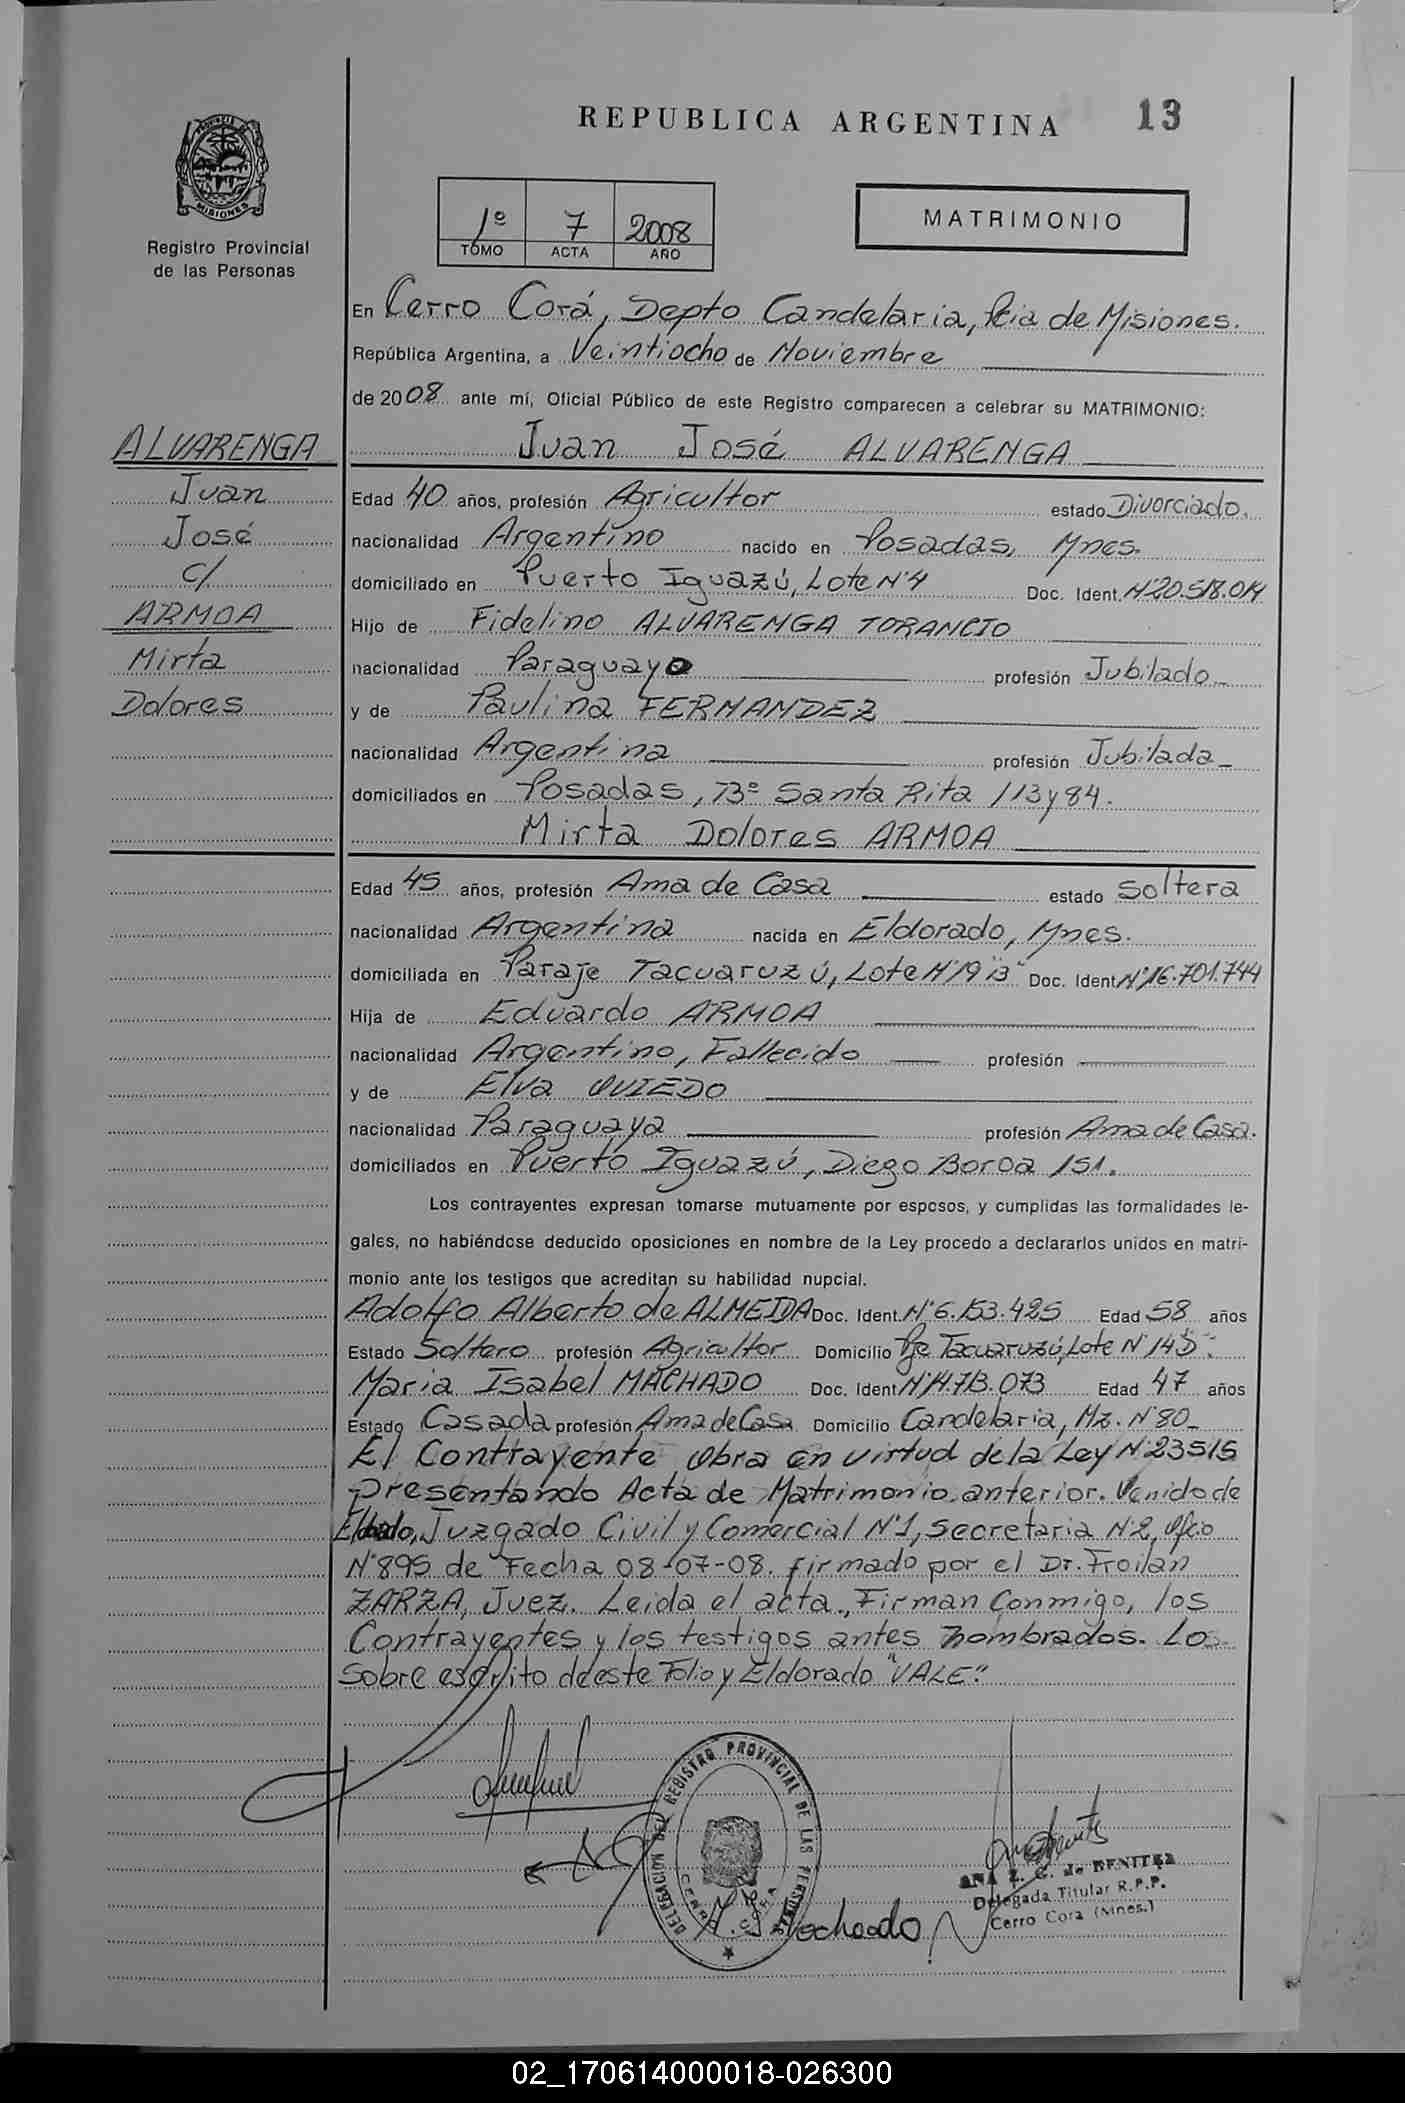 REPUBLICA ARGENTINA 13
PROVINCIA DE
MISIONES
Registro Provincial
de las Personas
1º 7 2008
TOMO ACTA AÑO
MATRIMONIO
En Cerro Corá, Depto Candelaria, Pcia de Misiones.
República Argentina, a Veintiocho de Noviembre
de 2008 ante mí, Oficial Público de este Registro comparecen a celebrar su MATRIMONIO:
ALVARENGA
Juan
José
c/
ARMOA
Mirta
Dolores
Juan José ALVARENGA
Edad 40 años, profesión Agricultor estado Divorciado.
nacionalidad Argentino nacido en Posadas, Mnes.
domiciliado en Puerto Iguazú, Lote Nº4 Doc. Ident. Nº20.518.014
Hijo de Fidelino ALVARENGA TORANCIO
nacionalidad Paraguayo profesión Jubilado
y de Paulina FERNANDEZ
nacionalidad Argentina profesión Jubilada
domiciliados en Posadas, Bº Santa Rita 113 y 84.
Mirta Dolores ARMOA
Edad 45 años, profesión Ama de Casa estado Soltera
nacionalidad Argentina nacida en Eldorado, Mnes.
domiciliada en Paraje Tacuaruzú, Lote Nº19 "B" Doc. Ident Nº16.701.744
Hija de Eduardo ARMOA
nacionalidad Argentino, Fallecido profesión
y de Elva OVIEDO
nacionalidad Paraguaya profesión Ama de Casa.
domiciliados en Puerto Iguazú, Diego Boroa 151.
Los contrayentes expresan tomarse mutuamente por esposos, y cumplidas las formalidades le-
gales, no habiéndose deducido oposiciones en nombre de la Ley procedo a declararlos unidos en matri-
monio ante los testigos que acreditan su habilidad nupcial.
Adolfo Alberto de ALMEIDA Doc. Ident. Nº6.153.425 Edad 58 años
Estado Soltero profesión Agricultor Domicilio Pje Tacuaruzú, Lote Nº 14 "D".
Maria Isabel MACHADO Doc. Ident Nº14.713.073 Edad 47 años
Estado Casada profesión Ama de Casa Domicilio Candelaria, Mz. Nº80
El Contrayente Obra en virtud de la Ley Nº23515
Presentando Acta de Matrimonio anterior. Venido de
Eldorado, Juzgado Civil y Comercial Nº1, Secretaria Nº2, Ofcio
Nº895 de Fecha 08-07-08. firmado por el Dr. Froilan
ZARZA, Juez. Leida el acta., Firman Conmigo, los
Contrayentes y los testigos antes nombrados. Lo
Sobre escrito de este Folio y Eldorado "VALE".
DELEGACION DEL REGISTRO PROVINCIAL DE LAS PERSONAS
CERRO CORA
Machado
ANA Z. G. de BENITEZ
Delegada Titular R.P.P.
Cerro Cora (Mnes.)
02_170614000018-026300